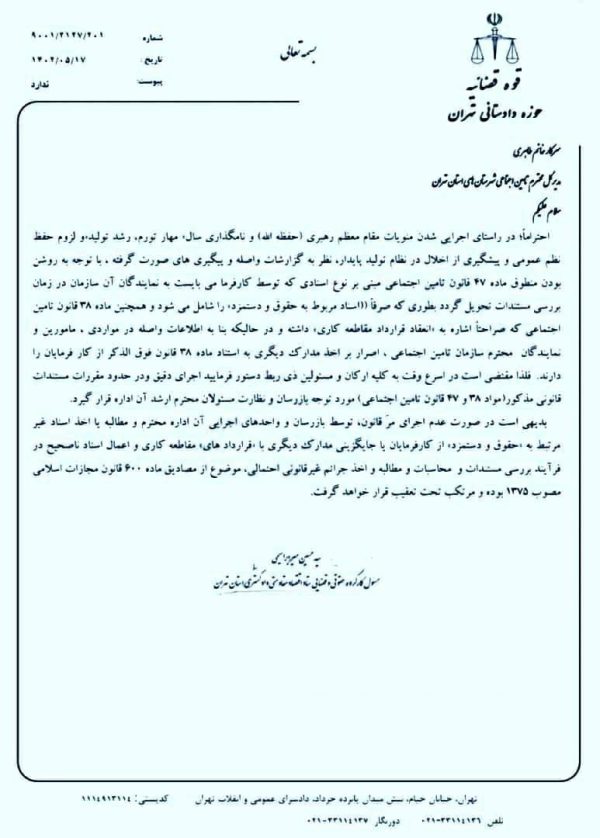 بسمه تعالی
قوه قضائیه
حوزه دادستانی تهران
شماره ۹۰۰۱/۲۱۲۷/۲۰۱
تاریخ: ۱۴۰۲/۰۵/۱۷
پیوست: ندارد
سرکار خانم طاهری
مدیرکل محترم تامین اجتماعی شهرستان های استان تهران
سلام علیکم
احتراماً؛ در راستای اجرایی شدن منویات مقام معظم رهبری (حفظه الله) و نامگذاری سال» مهار تورم، رشد تولید»و لزوم حفظ
نظم عمومی و پیشگیری از اخلال در نظام تولید پایدار، نظر به گزارشات واصله و پیگیری های صورت گرفته ، با توجه به روشن
بودن منطوق ماده ۴۷ قانون تامین اجتماعی مبنی بر نوع اسنادی که توسط کارفرما می بایست به نمایندگان آن سازمان در زمان
بررسی مستندات تحویل گردد بطوری که صرفاً ((اسناد مربوط به حقوق و دستمزد» را شامل می شود و همچنین ماده ۳۸ قانون تامین
اجتماعی که صراحتاً اشاره به «انعقاد قرارداد مقاطعه کاری» داشته و در حالیکه بنا به اطلاعات واصله در مواردی ، مامورین و
نمایندگان محترم سازمان تامین اجتماعی ، اصرار بر اخذ مدارک دیگری به استناد ماده ۳۸ قانون فوق الذکر از کار فرمایان را
دارند. فلذا مقتضی است در اسرع وقت به کلیه ارکان و مسئولین ذی ربط دستور فرمایید اجرای دقیق ودر حدود مقررات مستندات
قانونی مذکور(مواد ۳۸ و ۴۷ قانون تامین اجتماعی) مورد توجه بازرسان و نظارت مسئولان محترم ارشد آن اداره قرار گیرد.
بدیهی است در صورت عدم اجرای مرّ قانون، توسط بازرسان و واحدهای اجرایی آن اداره محترم و مطالبه یا اخذ اسناد غیر
مرتبط به «حقوق و دستمزد» از کارفرمایان یا جایگزینی مدارک دیگری با «قرارداد های» مقاطعه کاری و اعمال اسناد ناصحیح در
فرآیند بررسی مستندات و محاسبات و مطالبه و اخذ جرائم غیرقانونی احتمالی، موضوع از مصادیق ماده ۶۰۰ قانون مجازات اسلامی
مصوب ۱۳۷۵ بوده و مرتکب تحت تعقیب قرار خواهد گرفت.
سید حسین
مسئول کارگروه حقوقی و قضایی ستاد اقتصاد مقاومتی دادگستری استان تهران
تهران، خیابان خیام، نبش میدان پانزده خرداد، دادسرای عمومی و انقلاب تهران کدپستی: ۱۱۱۴۹۱۳۱۱۴
تلفن ۳۳۱۱۴۱۳۶-۰۲۱ دورنگار ۳۳۱۱۴۱۳۷-۰۲۱